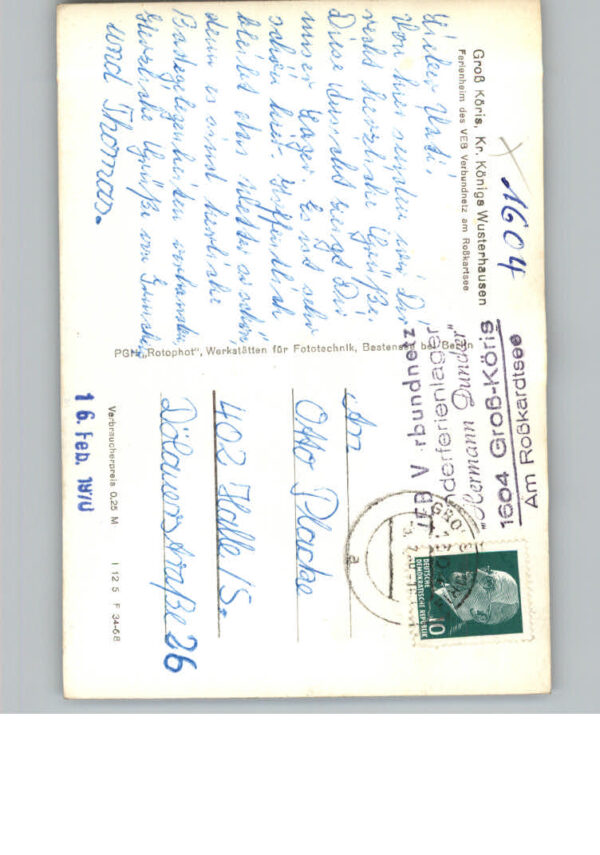 Groß Köris, Kr. Königs Wusterhausen
Ferienheim des VEB Verbundnetz am Roßkartsee
1604
Lieber Vati,
Von hier senden wir Dir
recht herzliche Grüße.
Diese Ansicht zeigt Dir
unser Lager. Es ist sehr
schön hier. Hoffentlich
bleibt das Wetter so schön,
denn es sind herrliche
Badegelegenheiten vorhanden.
Herzliche Grüße von
und Thomas.
PGH „Rotophot", Werkstätten für Fototechnik, Bestensee bei Berlin
VEB V rbundnetz
nderferienlager
"Hermann Duncker"
1604 Groß-Köris
Am Roßkardtsee
DEUTSCHE
DEMOKRATISCHE REPUBLIK
10
GROSS
a
An
Otto Placke
402 Halle/S.
Dölauerstraße 26
Verbraucherpreis 0,25 M
I 12 5 F 34-68
16. Feb. 1970